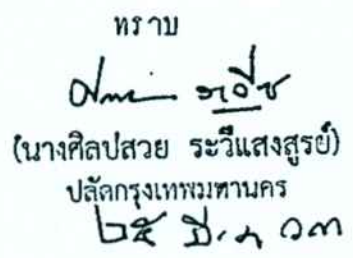 ทราบ
(นางศิลปสวย ระวีแสงสูรย์)
ปลัดกรุงเทพมหานคร
๒๕ มี.ค ๓๓